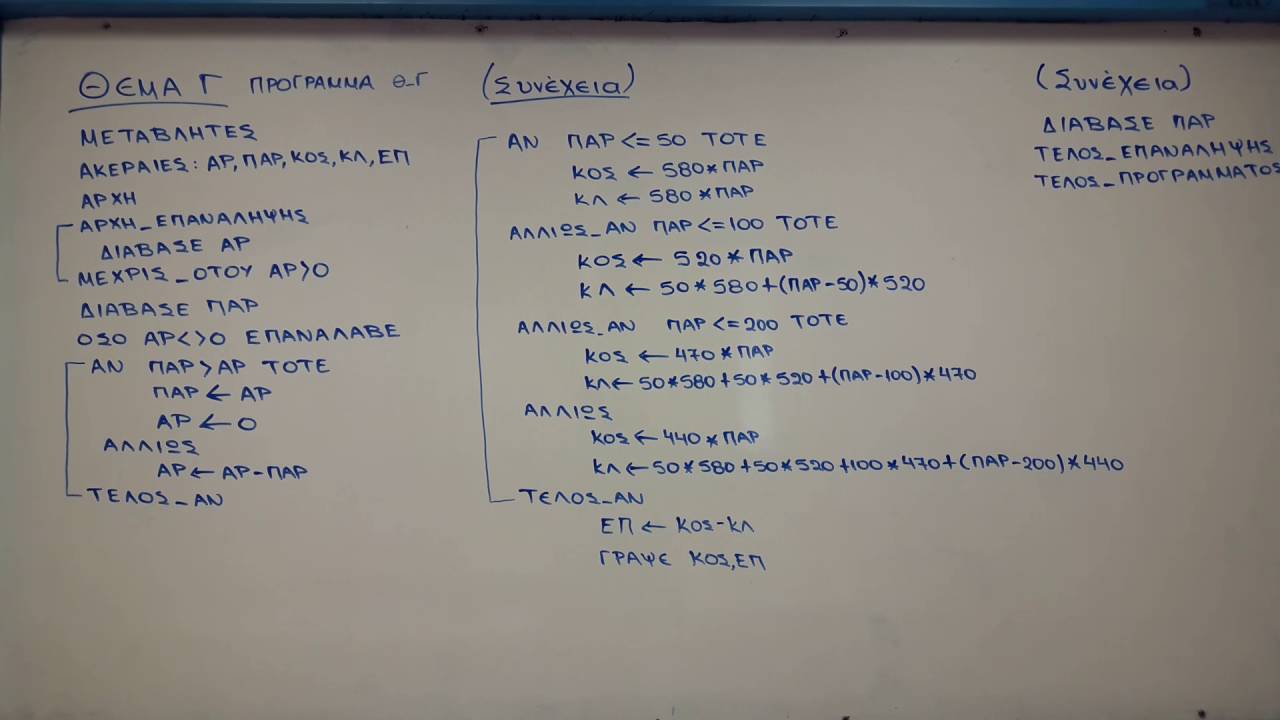 ΘΕΜΑ Γ ΠΡΟΓΡΑΜΜΑ Θ_Γ
ΜΕΤΑΒΛΗΤΕΣ
ΑΚΕΡΑΙΕΣ: ΑΡ, ΠΑΡ, ΚΟΣ, ΚΛ, ΕΠ
ΑΡΧΗ
ΑΡΧΗ_ΕΠΑΝΑΛΗΨΗΣ
ΔΙΑΒΑΣΕ ΑΡ
ΜΕΧΡΙΣ_ΟΤΟΥ ΑΡ>0
ΔΙΑΒΑΣΕ ΠΑΡ
ΟΣΟ ΑΡ<>0 ΕΠΑΝΑΛΑΒΕ
ΑΝ ΠΑΡ>ΑΡ ΤΟΤΕ
ΠΑΡ ← ΑΡ
ΑΡ ← 0
ΑΛΛΙΩΣ
ΑΡ ← ΑΡ-ΠΑΡ
ΤΕΛΟΣ_ΑΝ
(Συνέχεια)
ΑΝ ΠΑΡ <= 50 ΤΟΤΕ
ΚΟΣ ← 580*ΠΑΡ
ΚΛ ← 580*ΠΑΡ
ΑΛΛΙΩΣ_ΑΝ ΠΑΡ <= 100 ΤΟΤΕ
ΚΟΣ ← 520*ΠΑΡ
ΚΛ ← 50*580+(ΠΑΡ-50)*520
ΑΛΛΙΩΣ_ΑΝ ΠΑΡ <= 200 ΤΟΤΕ
ΚΟΣ ← 470*ΠΑΡ
ΚΛ ← 50*580+50*520+(ΠΑΡ-100)*470
ΑΛΛΙΩΣ
ΚΟΣ ← 440*ΠΑΡ
ΚΛ ← 50*580+50*520+100*470+(ΠΑΡ-200)*440
ΤΕΛΟΣ_ΑΝ
ΕΠ ← ΚΟΣ-ΚΛ
ΓΡΑΨΕ ΚΟΣ,ΕΠ
(Συνέχεια)
ΔΙΑΒΑΣΕ ΠΑΡ
ΤΕΛΟΣ_ΕΠΑΝΑΛΗΨΗΣ
ΤΕΛΟΣ_ΠΡΟΓΡΑΜΜΑΤΟΣ